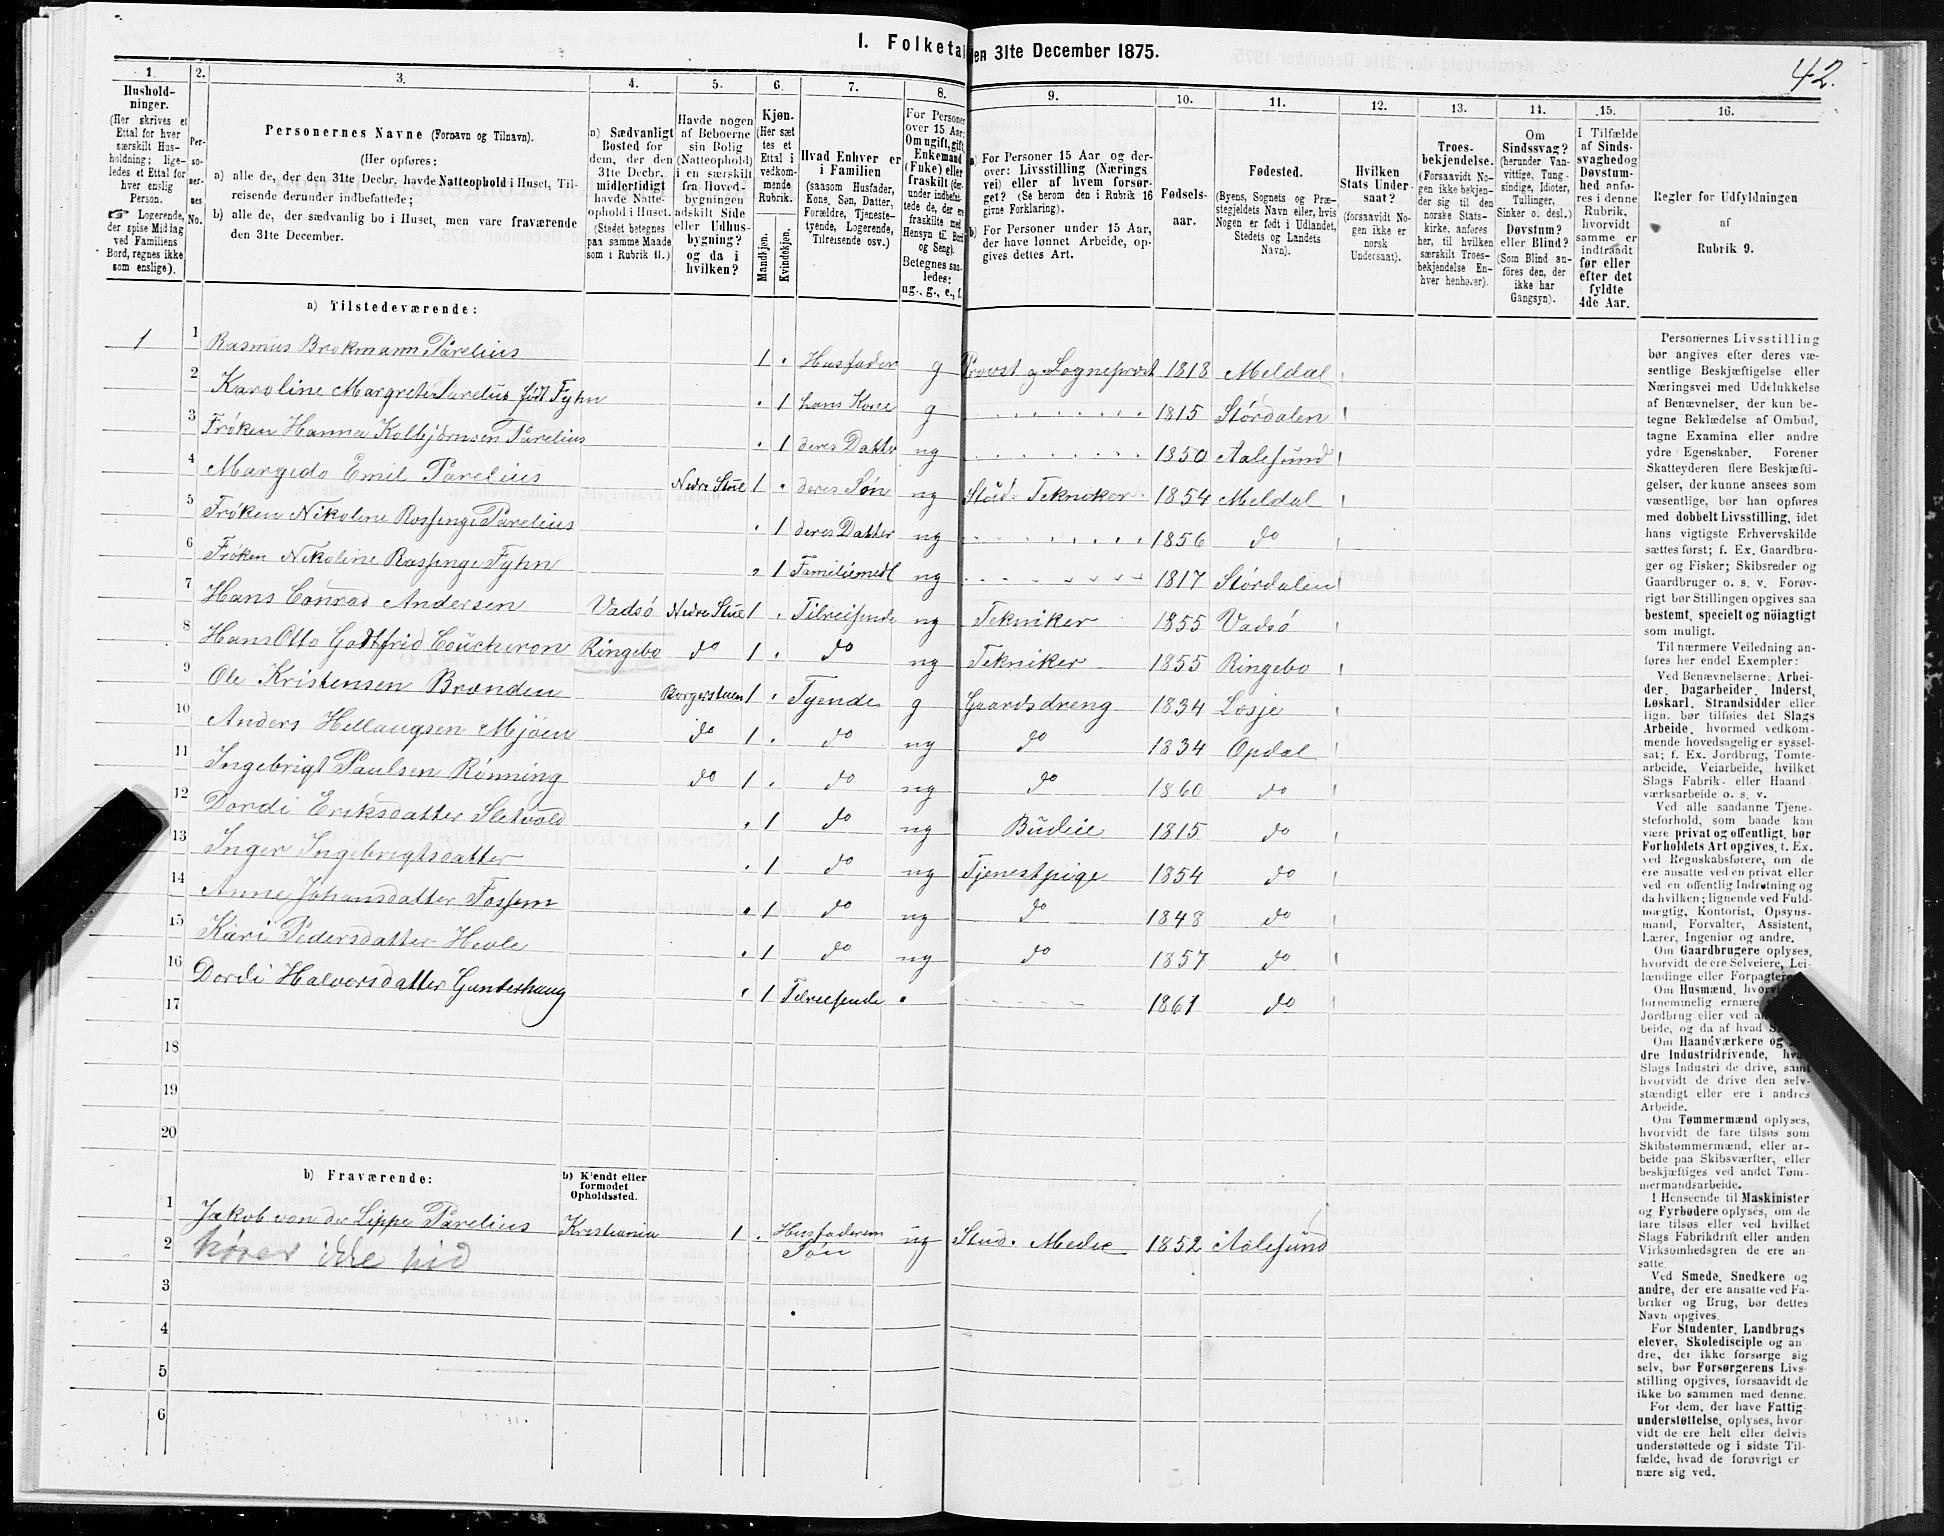 I. Folketal den 31te December 1875.
42.
1. 2. 3. 4. 5. 6. 7. 8. 9. 10. 11. 12. 13. 14. 15. 16.
Hushold-
ninger.
(Her skrives et
Ettal for hver
særskilt Hus-
holdning; lige-
ledes et Ettal for
hver enslig
Person.
☞ Logerende,
der spise Middag
ved Familiens
Bord, regnes ikke
som enslige).
Per-
so-
ner-
nes
No.
Personernes Navne (Fornavn og Tilnavn).
(Her opføres:
a) alle de, der den 31te Decbr. havde Natteophold i Huset, Til-
reisende derunder indbefattede;
b) alle de, der sædvanlig bo i Huset, men vare fraværende
den 31te December.
a) Sædvanligt
Bosted for
dem, der den
31te Decbr.
midlertidigt
havde Natte-
ophold i Huset.
(Stedet betegnes
paa samme Maade
som i Rubrik 11.)
Havde nogen
af Beboerne
sin Bolig
(Natteophold)
i en særskilt
fra Hoved-
bygningen
adskilt Side
eller Udhus-
bygning?
og da i
hvilken?
Kjøn.
(Her sæt
tes et
Ettal i
vedkom-
mende
Rubrik.
Mandkjøn.
Kvindekjøn.
Hvad Enhver er
i Familien
(saasom Husfader,
Kone, Søn, Datter,
Forældre, Tjeneste-
tyende, Logerende,
Tilreisende osv.)
For Personer
over 15 Aar:
Om ugift, gift,
Enkemand
(Enke) eller
fraskilt (der-
under indbefat-
tede de, der er
fraskilte med
Hensyn til Bord
og Seng).
Betegnes saa-
ledes:
ug., g., e., f.
a) For Personer 15 Aar og der-
over: Livsstilling (Nærings
vei) eller af hvem forsør-
get? (Se herom den i Rubrik 16
givne Forklaring).
b) For Personer under 15 Aar,
der have lønnet Arbeide, op-
gives dettes Art.
Fødsels-
aar.
Fødested.
(Byens, Sognets og Præ-
stegjeldets Navn eller, hvis
Nogen er født i Udlandet,
Stedets og Landets
Navn).
Hvilken
Stats Under-
saat?
(forsaavidt No-
gen ikke er
norsk
Undersaat).
Troes-
bekjendelse.
(Forsaavidt No-
gen ikke bekjen-
der sig til den
norske Stats-
kirke, anføres
her, til hvilken
særskilt Troes-
bekjendelse En-
hver henhører).
Om
Sindssvag?
(herunder Van-
vittige, Tung-
sindige, Idioter,
Tullinger,
Sinker o. desl.)
Døvstum?
eller Blind?
(Som Blind an-
føres den, der
ikke har
Gangsyn).
I Tilfælde
af Sinds-
svaghed og
Døvstum-
hed anfø-
res i denne
Rubrik,
hvorvidt
samme er
indtraadt
før eller
efter det
fyldte
4de Aar.
Regler for Udfyldningen
af
Rubrik 9.
a) Tilstedeværende:
1 1 Rasmus Brokmann Parelius 1 . Husfader g Provst og Sogneprest 1818 Meldal
2 Karoline Margrete Parelius født Fyhn . 1 hans Kone g 1815 Stördalen
3 Frøken Hanna Kolbjörnsen Parelius . 1 deres Datter ug 1850 Aalesund
4 Margido Emil Parelius Nedre Stue 1 . deres Søn ug Stud. Tekniker 1854 Meldal
5 Frøken Nikoline Rossinge Parelius . 1 deres Datter ug 1856 do
6 Frøken Nikoline Rossinge Fyhn . 1 Familiemedl ug 1817 Stördalen
7 Hans Conrad Andersen Vadsö Nedre Stue 1 . Tilreisende ug Tekniker 1855 Vadsö
8 Hans Otto Gottfrid Coucheron Ringebo do 1 . do ug Tekniker 1855 Ringebo
9 Ole Kristensen Brænden Borgerstuen 1 . Tyende g Gaardsdreng 1834 Lesje
10 Anders Hellaugsen Mjöen do 1 . do ug do 1834 Opdal
11 Ingebrigt Paulsen Rönning do 1 . do ug do 1860 do
12 Dordi Eriksdatter Sletvold . 1 do ug Budeie 1815 do
13 Inger Ingebrigtsdatter . 1 do ug Tjenestpige 1854 do
14 Anne Johansdatter Fossem . 1 do ug do 1848 do
15 Kari Pedersdatter Hevle . 1 do ug do 1857 do
16 Dordi Halvorsdatter Gunderhaug . 1 Tilreisende . 1861 do
17
18
19
20
b) Fraværende:
b) Kjendt eller
formodet
Opholdssted.
1 Jakob von der Lippe Parelius Kristiania 1 . Husfaderens Søn ug Stud. Medic 1852 Aalesund
2 hører ikke hid
3
4
5
6
Personernes Livsstilling
bør angives efter deres væ-
sentlige Beskjæftigelse eller
Næringsvei med Udelukkelse
af Benævnelser, der kun be-
tegne Beklædelse af Ombud,
tagne Examina eller andre
ydre Egenskaber. Forener
Skatteyderen flere Beskjæfti-
gelser, der kunne ansees som
væsentlige, bør han opføres
med dobbelt Livsstilling, idet
hans vigtigste Erhvervskilde
sættes først; f. Ex. Gaardbru-
ger og Fisker; Skibsreder og
Gaardbruger o. s. v. Forøv-
rigt bør Stillingen opgives saa
bestemt, specielt og nöiagtigt
som muligt.
Til nærmere Veiledning an-
føres her endel Exempler:
Ved Benævnelserne: Arbei-
der, Dagarbeider, Inderst,
Løskarl, Strandsidder eller
lign. bør tilføies det Slags
Arbeide, hvormed vedkom-
mende hovedsagelig er syssel-
sat; f. Ex. Jordbrug, Tomte-
arbeide, Veiarbeide, hvilket
Slags Fabrik- eller Haand
værksarbeide o. s. v.
Ved alle saadanne Tjene-
steforhold, som baade kan
være privat og offentligt, bør
Forholdets Art opgives, t. Ex.
ved Regnskabsførere, om de
ere ansatte ved en privat eller
ved en offentlig Indretning og
da hvilken; lignende ved Fuld-
mægtig, Kontorist, Opsyns-
mand, Forvalter, Assistent,
Lærer, Ingeniør og andre.
Om Gaardbrugere oplyses,
hvorvidt de ere Selveiere, Lei-
lændinge eller Forpagtere
Om Husmænd,
fornemmelig ernære
Jordbrug eller ved
beide, og da af hvad
Om Haandværkere og
dre Industridrivende,
Slags Industri de drive, samt
hvorvidt de drive den selv-
stændigt eller ere i andres
Arbeide.
Om Tømmermænd oplyses,
hvorvidt de fare tilsøs som
Skibstømmermænd, eller ar-
beide paa Skibsværfter, eller
beskjæftiges ved andet Tøm-
mermandsarbeide.
I Henseende til Maskinister
og Fyrbødere oplyses, om de
fare tilsøs eller ved hvilket
Slags Fabrikdrift eller anden
Virksomhedsgren de ere an-
satte.
Ved Smede, Snedkere og
andre, der ere ansatte ved Fa-
briker og Brug, bør dettes
Navn opgives.
For Studenter, Landbrugs
elever, Skoledisciple og an-
dre, der ikke forsørge sig
selv, bør Forsørgerens Livs-
stilling opgives, forsaavidt de
ikke bo sammen med denne.
For dem, der have Fattig-
understøttelse, oplyses, hvor
vidt de ere helt eller delvis
understøttede og i sidste Til-
fælde, hvad de forøvrigt er
nære sig ved.